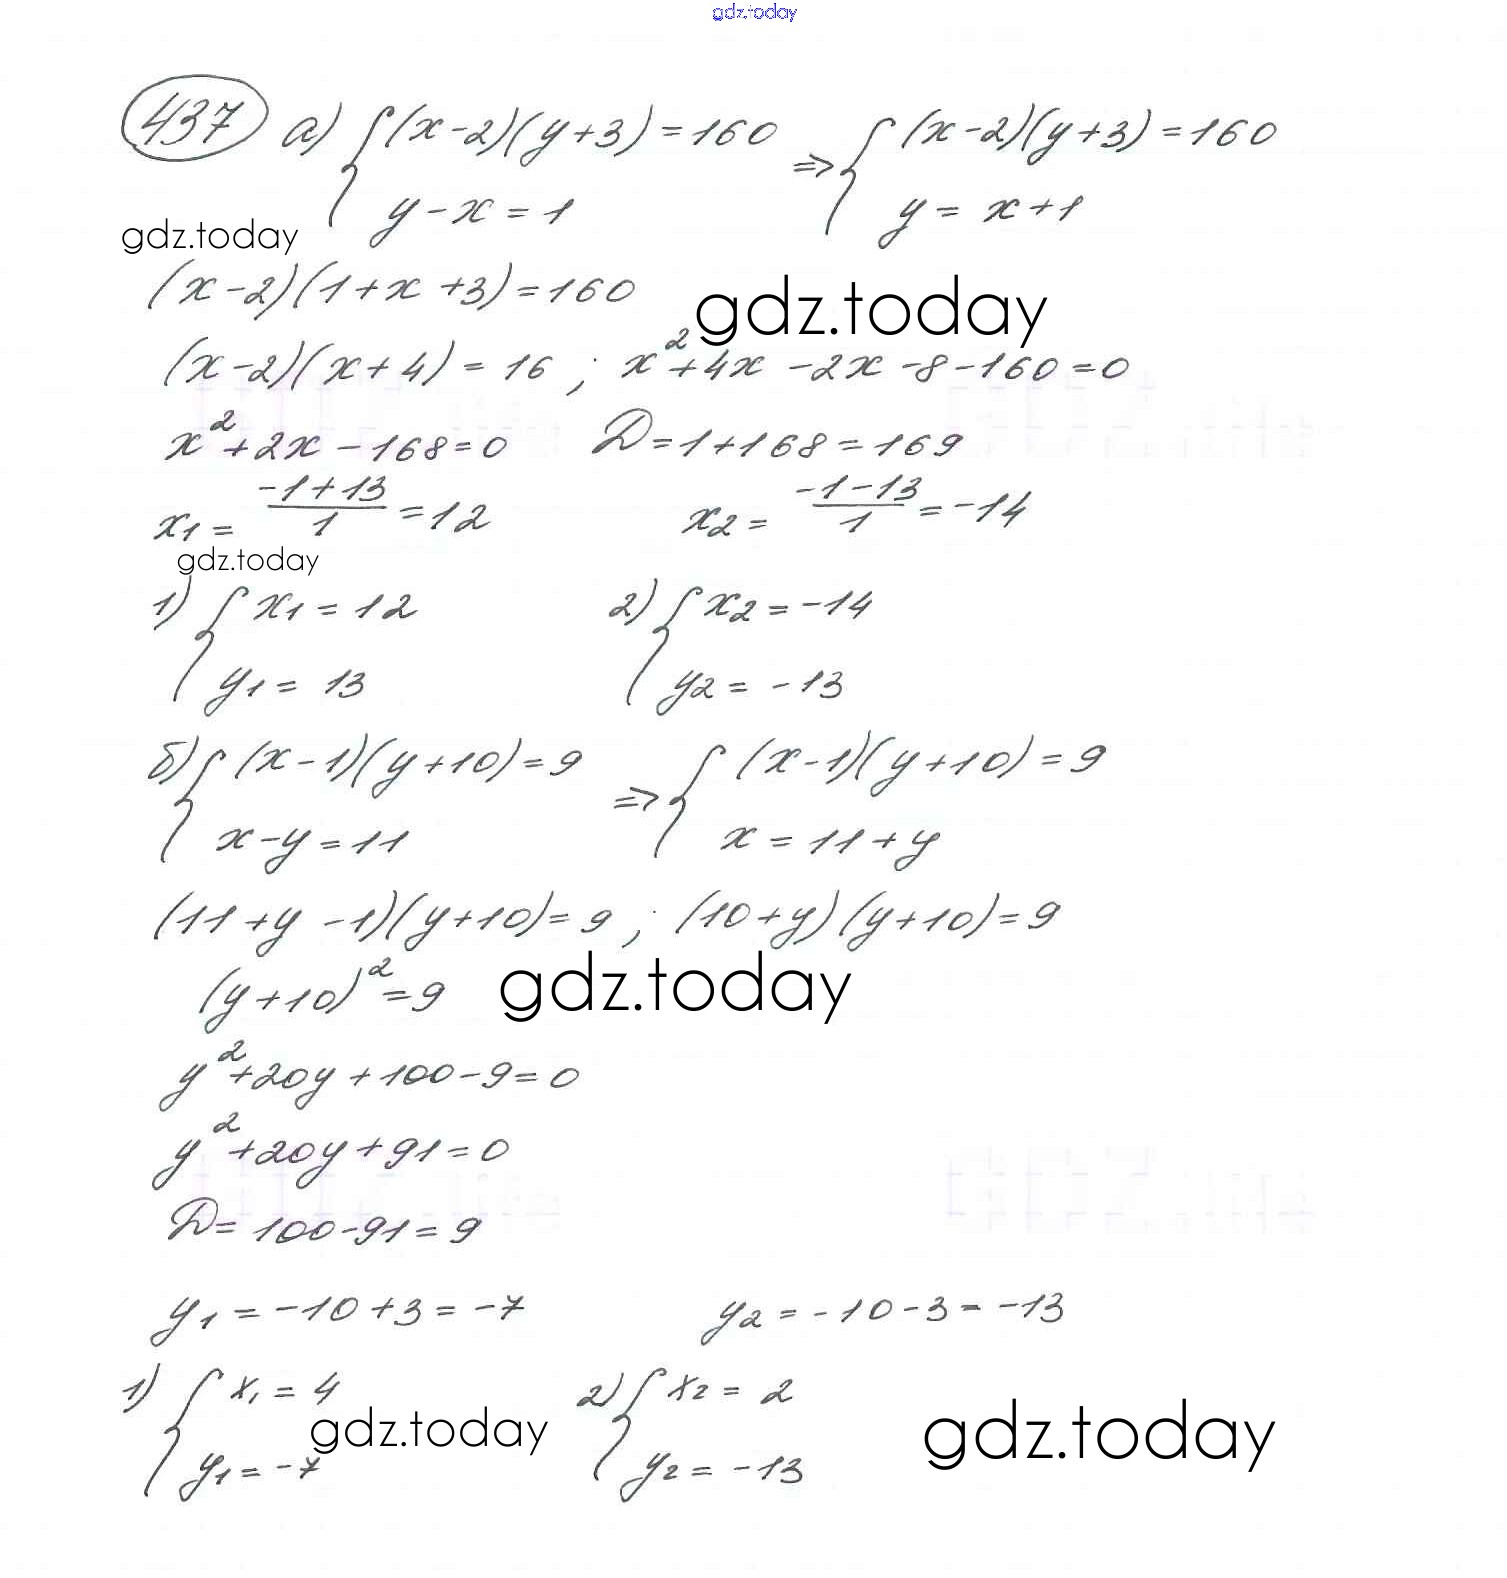 gdz.today
437 а) { (x-2)(y+3)=160 => { (x-2)(y+3)=160
y-x=1 y= x+1
gdz.today
(x-2)(1+x+3)=160
gdz.today
(x-2)(x+4)= 16 ; x²+4x-2x-8-160=0
x²+2x-168=0 D=1+168=169
x1= (-1+13)/1 =12 x2= (-1-13)/1 =-14
gdz.today
1) { x1=12 2) { x2=-14
y1= 13 y2=-13
б) { (x-1)(y+10)=9 => { (x-1)(y+10)=9
x-y=11 x=11+y
(11+y-1)(y+10)=9 ; (10+y)(y+10)=9
(y+10)²=9
gdz.today
y²+20y+100-9=0
y²+20y+91=0
D=100-91=9
y1=-10+3=-7 y2=-10-3=-13
1) { x1=4 2) { x2=2
gdz.today gdz.today
y1=-7 y2=-13